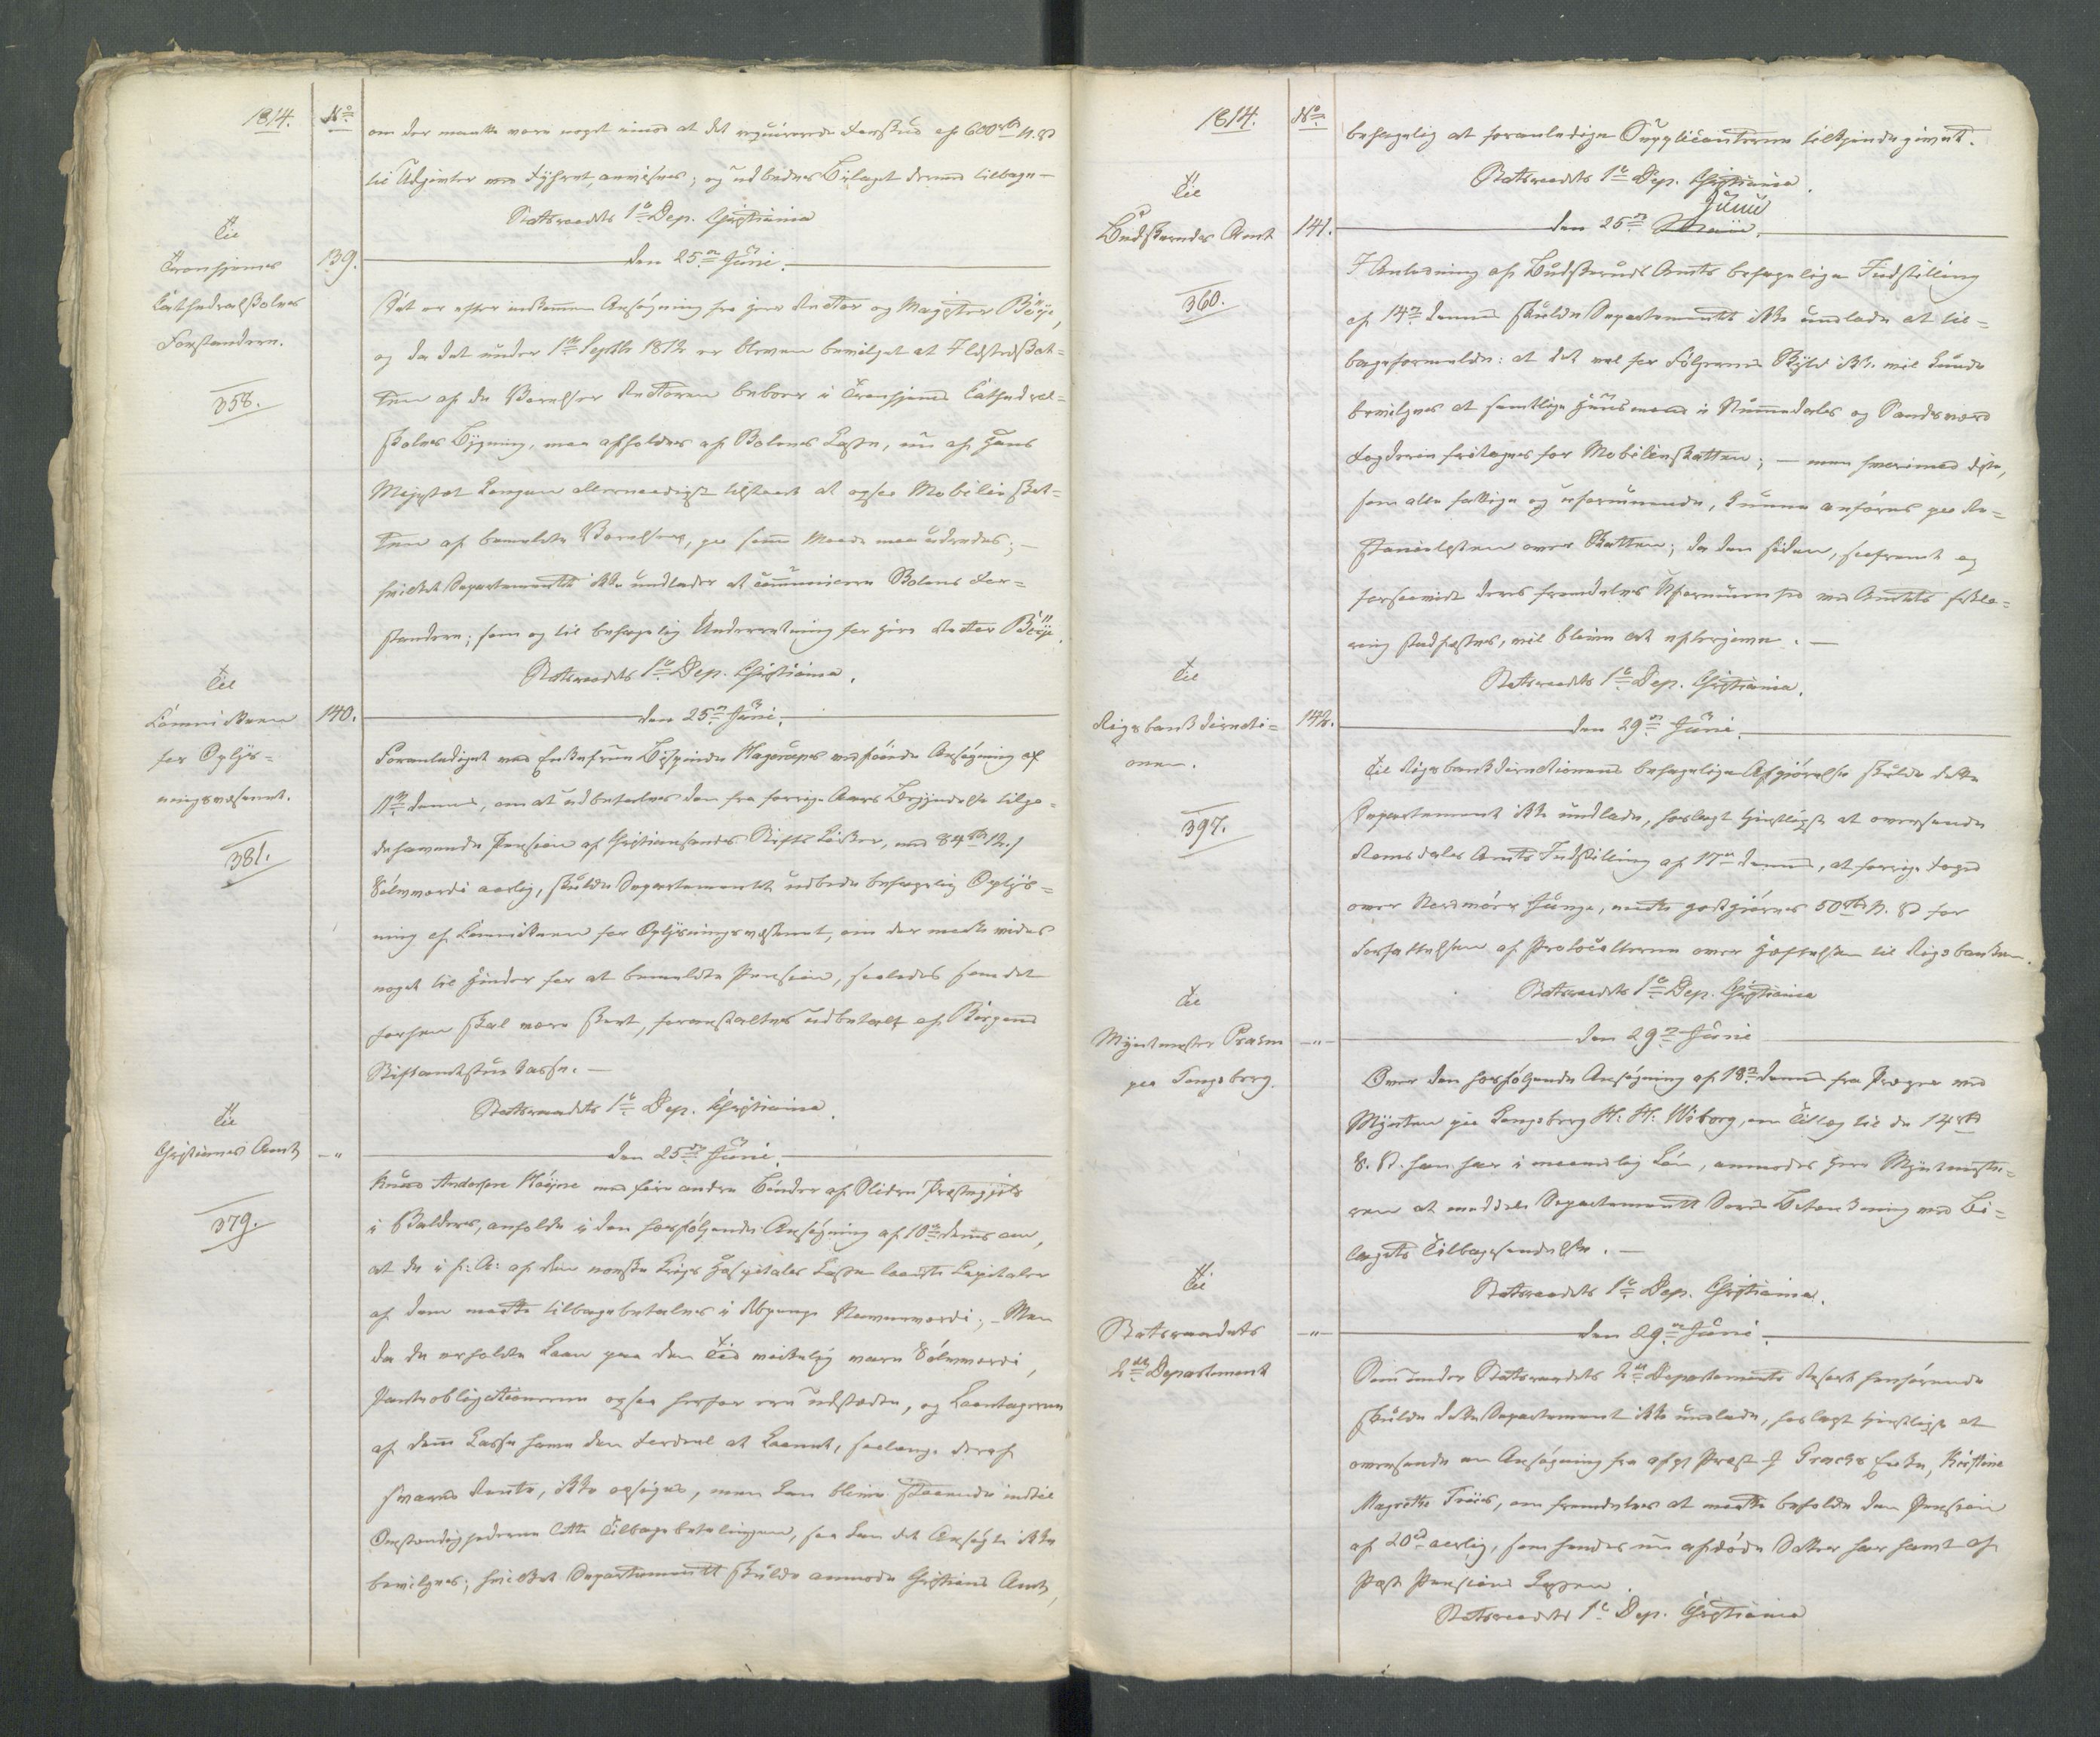 1814.
No
om der maatte være noget imod at det requirerede Forskud af 600 rbd N. V.
til Udgivter ved Fyhret, anvises; og udbedes Bilaget derved tilbage —
Statsraadets 1ste Dep. Christiania
den 25de Juni.
Til
Tronhjems
Cathedralskoles
Forstandere.
139.
358.
Det er efter indkommen Ansøgning fra Herr Rector og Magister Bøije,
og da det under 1ste Septbr 1812 er bleven bevilget at Ildstedskat-
ten af de Værelser Rectoren beboer i Tronhjems Cathedral-
skoles Bygning, maa afholdes af Skolens Casse, nu af Hans
Majestæt Kongen allernaadigst tilstaaet at ogsaa Mobilieskat-
ten af bemeldte Værelser, paa samme Maade maa udredes; —
hvilket Departementet ikke undlader at communicere Skolens For-
standere; som og til behagelig Underretning for Herr Rector Bøije.
Statsraadets 1ste Dep. Christiania.
Til
Commissionen
for Oplys-
ningsvæsenet.
140.
381.
den 25de Juni.
Foranlediget ved Enkefrue Bispinde Hagerups vedføiede Ansøgning af
11te dennes, om at udbetales den fra forrige Aars Begyndelse tilgo-
dehavende Pension af Christiansands Stifts Kirker, med 84 rbd 12 s
Sølvværdi aarlig, skulde Departementet udbede behagelig Oplys-
ning af Commissionen for Oplysningsvæsenet, om der maatte vides
noget til Hinder for at bemeldte Pension, saaledes som det
forhen skal være skeet, foranstaltes udbetalt af Bergens
Stiftamtstue Casse. —
Statsraadets 1ste Dep. Christiania.
Til
Christians Amt
— „
379.
den 25de Juni.
Knud Andersen Høyne med fire andre Bønder af Slidre Præstegjeld
i Valders, anholde i den hosfølgende Ansøgning af 10de dennes om,
at de i f: A: af den norske Krigs Hospitales Casse laante Capitaler
af dem maatte tilbagebetales i Rbpenge Navneværdi; — Men
da de erholdte Laan paa den Tid virkelig vare Sølvværdi,
Panteobligationerne ogsaa herfor ere udstædte, og Laantagerne
af denne Casse have den Fordeel at Laanet, saalænge deraf
svares Rente, ikke opsiges, men kan blive staaende indtil
Omstændighederne lette Tilbagebetalingen, saa kan det Ansøgte ikke
bevilges; hvilket Departementet skulde anmode Christians Amt,
1814.
No
behagelig at foranledige Supplicanterne tilkjendegivet.
Statsraadets 1ste Dep. Christiania.
Til
Buskeruds Amt
141.
360.
Junii
den 25de
I Anledning af Buskeruds Amts behagelige Indstilling
af 14de dennes skulde Departementet ikke undlade at til-
bagemelde: at det vel for Følgernes Skyld ikke vil kunde
bevilges at samtlige Huusmænd i Nummedals og Sandsværd
Fogderie fritages for Mobilieskatten; — men hvorimod disse,
som alle fattige og uformuende, kunne anføres paa Re-
stancelisten over Skatten; da den siden, saafremt og
forsaavidt deres fremdeles Uformuenhed ved Amtets Erklæ-
ring stadfæstes, vil blive at eftergive. —
Statsraadets 1ste Dep. Christiania.
Til
Rigsbankdirecti-
onen.
142.
397.
den 29de Juni.
Til Rigsbankdirectionens behagelige Afgjørelse skulde dette
Departement ikke undlade, hoslagt tienstligst at oversende
Romsdals Amts Indstilling af 17de dennes, at forrige Foged
over Nordmøre Junge, maatte godtgiøres 50 rbd N. V. for
Forfattelsen af Protocollerne over Hæftelsen til Rigsbanken.
Statsraadets 1ste Dep. Christiania
Til
Myntmester Prahm
paa Kongsberg.
— „ —
den 29de Junie
Over den hosfølgende Ansøgning af 18de dennes fra Præger ved
Mynten paa Kongsberg H: H: Wiborg, om Tillæg til de 14 rbd
S. V. han har i maanedlig Løn, anmodes Herr Myntmeste-
ren at meddele Departementet Deres Betænkning med Bi-
lagets Tilbagesendelse. —
Statsraadets 1ste Dep. Christiania.
Til
Statsraadets
2det Departement
— „ —
den 29de Juni.
Som under Statsraadets 2det Departements Resort henhørende
skulde dette Departement ikke undlade, hoslagt tienstligst at
oversende en Ansøgning fra afgl. Præst Enke, Kirstine
Magrethe Friis, om fremdeles at maatte beholde den Pension
af 20 rd aarlig, som hendes nu afdøde Datter har havt af
Post Pensions Kassen.
Statsraadets 1ste Dep. Christiania